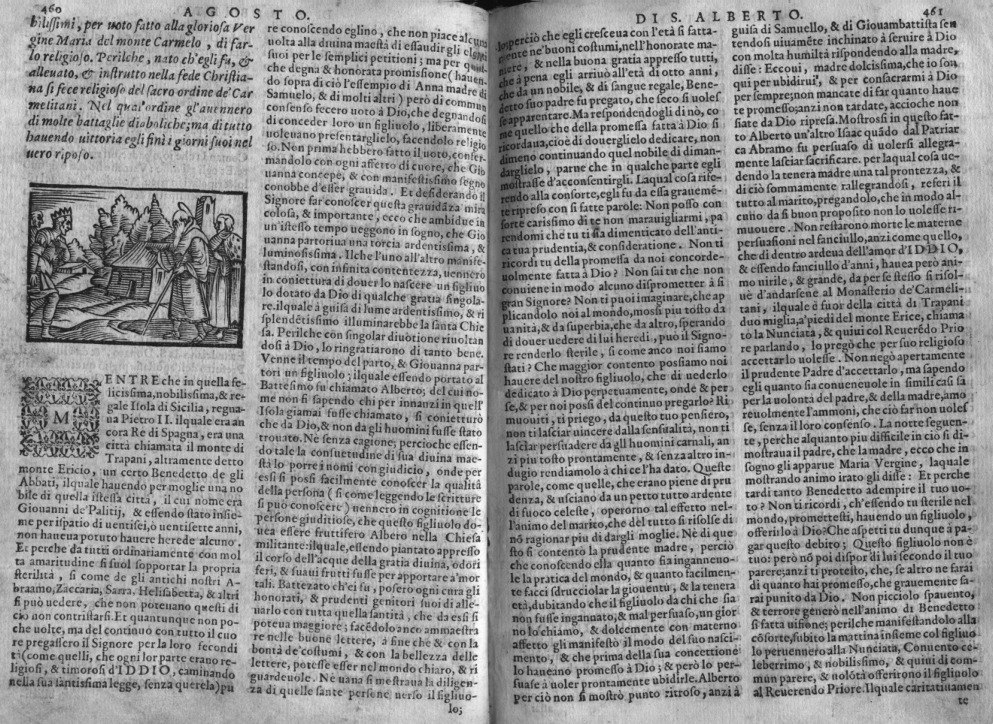 460 AGOSTO.
bilissimi, per uoto fatto alla gloriosa Ver
gine Maria del monte Carmelo, di far-
lo religioso. Perilche, nato ch'egli fu, &
alleuato, & instrutto nella fede Christia-
na si fece religioso del sacro ordine de' Car
melitani. Nel qual'ordine gl'auennero
di molte battaglie diaboliche; ma di tutto
hauendo uittoria egli finì i giorni suoi nel
uero riposo.
MENTRE che in quella fe-
licissima, nobilissima, & re-
gale Isola di Sicilia, regna-
ua Pietro II. ilquale era an
cora Re di Spagna, era una
città chiamata il monte di
Trapani, altramente detto
monte Ericio, un certo Benedetto de gli
Abbati, ilquale hauendo per moglie una no
bile di quella istessa città, il cui nome era
Giouanni de'Palitij, & essendo stato insie-
me per ispatio di uentisei, o uentisette anni,
non haueua potuto hauere herede alcuno.
Et perche da tutti ordinariamente con mol
ta amaritudine si suol sopportar la propria
sterilità, si come de gli antichi nostri A-
braamo, Zaccaria, Sarra, Helisabetta, & altri
si può uedere, che non poteuano questi di
ciò non contristarsi. Et quantunque non po-
che uolte, ma del continuo con tutto il cuo
re pregassero il Signore per la loro fecondi
tà (come quelli, che ogni lor parte erano re-
ligiosi, & timorosi d'IDDIO, caminando
nella sua santissima legge, senza querela) pu
re conoscendo eglino, che non piace alcuna
uolta alla diuina maestà di essaudir gli eletti
suoi per le semplici petitioni; ma per qual-
che degna & honorata promissione (hauen-
do sopra di ciò l'essempio di Anna madre di
Samuelo, & di molti altri) però di commun
consenso fecero uoto à Dio, che degnandosi
di conceder loro un figliuolo, liberamente
uoleuano presentarglielo, facendolo religio
so. Non prima hebbero fatto il uoto, confer-
mandolo con ogni affetto di cuore, che Gio
uanna concepè, & con manifestissimo segno
conobbe d'esser grauida. Et desiderando il
Signore far conoscer questa grauidāza mira
colosa, & importante, ecco che ambidue in
un'istesso tempo ueggono in sogno, che Gio
uanna partoriua una torcia ardentissima, &
luminosissima. Ilche l'uno all'altro manife-
standosi, con infinita contentezza, uennero
in coniettura di douer lo nascere un figliuo
lo dotato da Dio di qualche gratia singola-
re. ilquale à guisa di lume ardentissimo, & ri
splendētissimo illuminarebbe la santa Chie
sa. Perilche con singolar diuotione riuoltan
dosi à Dio, lo ringratiarono di tanto bene.
Venne il tempo del parto, & Giouanna par-
torì un figliuolo; ilquale essendo portato al
Battesimo fu chiamato Alberto; del cui no-
me non si sapendo chi per innanzi in quell'
Isola giamai fusse chiamato, si conietturò
che da Dio, & non da gli huomini fusse stato
trouato. Nè senza cagione; percioche essen-
do tale la consuetudine di sua diuina mae-
stà lo porre i nomi con giudicio, onde per
essi si possi facilmente conoscer la qualità
della persona (si come leggendo le scritture
si può conoscere) uennero in cognitione le
persone giuditiose, che questo figliuolo do-
uea essere fruttifero Albero nella Chiesa
militante: ilquale, essendo piantato appresso
il corso dell'acque della gratia diuina, odori
feri, & suaui frutti fusse per apportare a'mor
tali. Battezato ch'ei fu, posero ogni cura gli
honorati, & prudenti genitori suoi di alle-
uarlo con tutta quella santità, che da essi si
poteua maggiore; facēdolo anco ammaestra
re nelle buone lettere, à fine che & con la
bontà de'costumi, & con la bellezza delle
lettere, potesse esser nel mondo chiaro, & ri
guardeuole. Nè uana si mostraua la diligen-
za di quelle sante persone uerso il figliuo-
lo;
DI S. ALBERTO. 461
perciò che egli cresceua con l'età si fatta-
mente ne' buoni costumi, nell'honorate ma-
niere, & nella buona gratia appresso tutti,
che à pena egli arriuò all'età di otto anni,
che da un nobile, & di sangue regale, Bene-
detto suo padre fu pregato, che seco si uoles
se apparentare. Ma respondendogli di nò, co
me quello che della promessa fatta à Dio si
ricordaua, cioè di douerglielo dedicare, non
dimeno continuando quel nobile di diman-
darglielo, parue che in qualche parte egli
mostrasse d'acconsentirgli. Laqual cosa rife-
rendo alla consorte, egli fu da essa grauemē-
te ripreso con si fatte parole: Non posso con
sorte carissimo di te non marauigliarmi, pa
rendomi che tu ti sia dimenticato dell'anti-
ca tua prudentia, & consideratione. Non ti
ricordi tu della promessa da noi concorde-
uolmente fatta à Dio? Non sai tu che non
conuiene in modo alcuno disprometter à sì
gran Signore? Non ti puoi imaginare, che ap
plicandolo noi al mondo, mossi piu tosto da
uanità, & da superbia, che da altro, sperando
di douer uedere di lui heredi, può il Signo-
re renderlo sterile, si come anco noi siamo
stati? Che maggior contento possiamo noi
hauere del nostro figliuolo, che di uederlo
dedicato à Dio perpetuamente, onde & per
se, & per noi possi del continuo pregarlo? Ri
muouiti, ti priego, da questo tuo pensiero,
non ti lasciar uincere dalla sensualità, non ti
lasciar persuadere da gli huomini carnali, an
zi piu tosto prontamente, & senza altro in-
dugio rendiamolo à chi ce l'ha dato. Queste
parole, come quelle, che erano piene di pru
denza, & usciano da un petto tutto ardente
di fuoco celeste, operorno tal effetto nel-
l'animo del marito, che del tutto si risolse di
nō ragionar piu di dargli moglie. Nè di que
sto si contentò la prudente madre, perciò
che conoscendo ella quanto sia ingannevo-
le la pratica del mondo, & quanto facilmen-
te facci sdrucciolar la giouentù, & la tenera
età, dubitando che il figliuolo da chi che sia
non fusse ingannato, & mal persuaso, un gior
no lo chiamò, & dolcemente con materno
affetto gli manifestò il modo del suo nasci-
mento, & che prima della sua concettione
lo haueano promesso à Dio; & però lo per-
suase à uoler prontamente ubidirle. Alberto
per ciò non si mostrò punto ritroso, anzi à
guisa di Samuello, & di Giouambattista sen
tendosi uiuamēte inchinato à seruire à Dio
con molta humiltà rispondendo alla madre,
disse: Eccoui, madre dolcissima, che io son
qui per ubidirui, & per consacrarmi à Dio
per sempre; non mancate di far quanto haue
te promesso; anzi non tardate, acciochè non
siate da Dio ripresa. Mostrossi in questo fat-
to Alberto un'altro Isaac quādo dal Patriar
ca Abramo fu persuaso di uolersi allegra-
mente lasciar sacrificare. per laqual cosa ue-
dendo la tenera madre una tal prontezza, &
di ciò sommamente rallegrandosi, referì il
tutto al marito, pregandolo, che in modo al-
cuno da sì buon proposito non lo uolesse ri-
muouere. Non restarono morte le materne
persuasioni nel fanciullo, anzi come quello,
che di dentro ardeua dell'amor d'IDDIO,
& essendo fanciullo d'anni, hauea però ani-
mo uirile, & grande, da per se stesso si risol-
uè d'andarsene al Monasterio de' Carmeli-
tani, ilquale è fuor della città di Trapani
duo miglia, a'piedi del monte Erice, chiama
to la Nunciata, & quiui col Reuerēdo Prio
re parlando, lo pregò che per suo religioso
accettarlo uolesse. Non negò apertamente
il prudente Padre d'accettarlo, ma sapendo
egli quanto sia conueneuole in simili casi sa
per la uolontà del padre, & della madre, amo
reuolmente l'ammonì, che ciò far non uoles
se, senza il loro consenso. La notte seguen-
te, perche alquanto piu difficile in ciò si di-
mostraua il padre, che la madre, ecco che in
sogno gli apparue Maria Vergine, laquale
mostrando animo irato gli disse: Et perche
tardi tanto Benedetto adempire il tuo uo-
to? Non ti ricordi, ch'essendo tu sterile nel
mōndo, promettesti, hauendo un figliuolo,
offerirlo à Dio? Che aspetti tu dunque à pa-
gar questo debito? Questo figliuolo non è
tuo: però nō poi dispor di lui secondo il tuo
parere; anzi ti protesto, che, se altro ne farai
di quanto hai promesso, che grauemente sa-
rai punito da Dio. Non picciolo spauento,
& terrore generò nell'animo di Benedetto
sì fatta uisione; perilche manifestandolo alla
cōsorte, subito la mattina insieme col figliuo
lo peruennero alla Nunciata, Conuento ce-
leberrimo, & nobilissimo, & quiui di com-
mun parere, & uolōtà offerirono il figliuolo
al Reuerendo Priore. Ilquale caritatiuamen
te